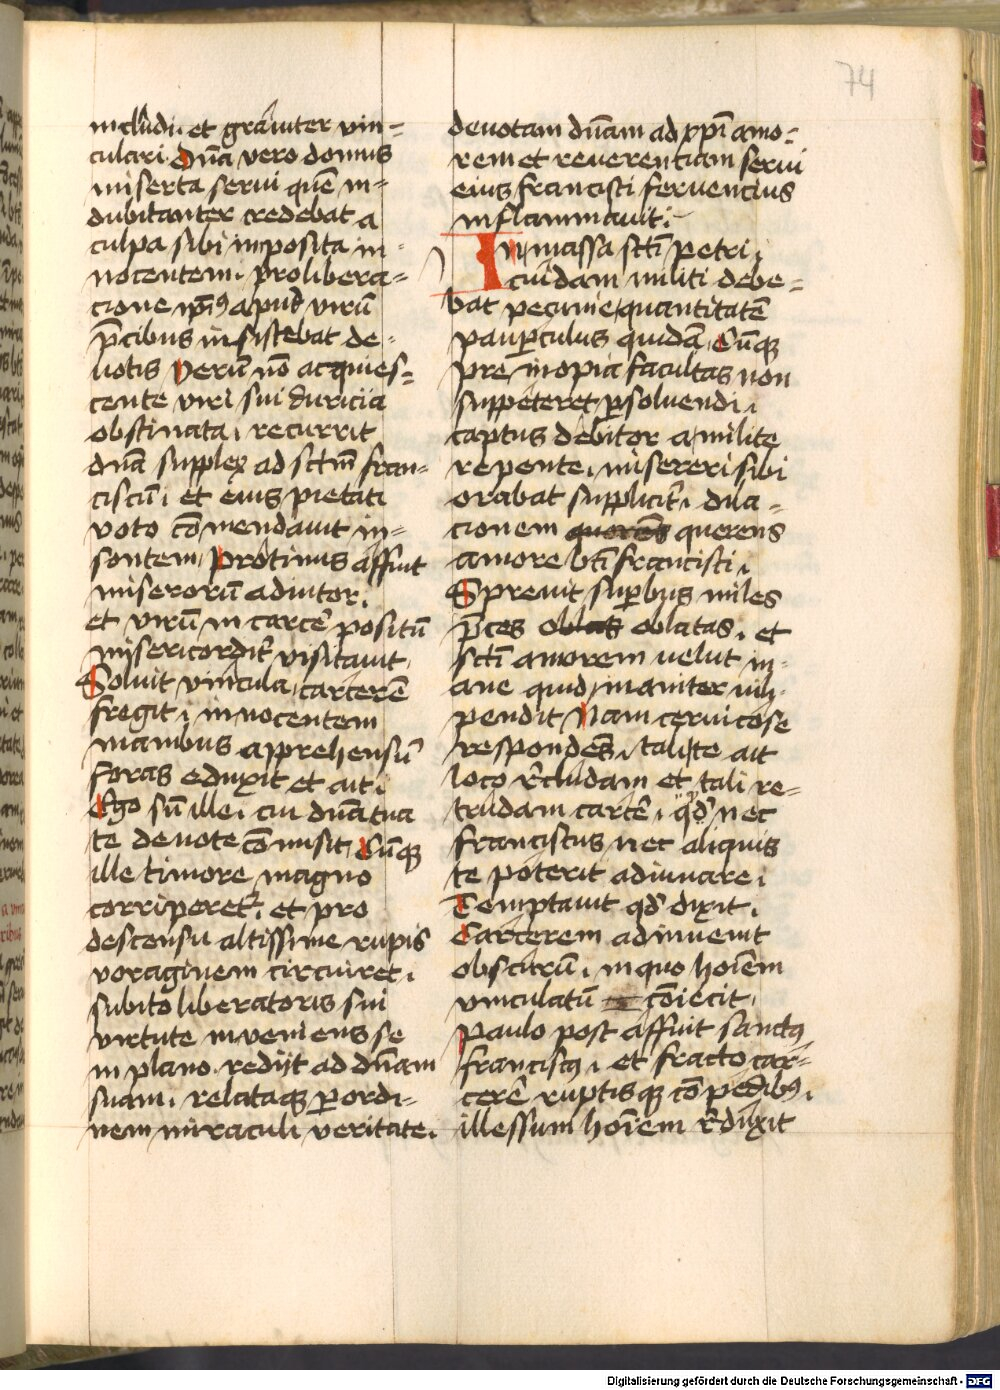 74
includi. et grauiter vin=
culari. dn̄a vero domus
miserta serui quē in=
dubitanter credebat a
culpa sibi inposita in=
nocentem. pro libera=
cione ip̄i9 apud virū
p̄cibus insistebat de=
uotis Verū nō acquies=
cente viri sui duricia
obstinata. recurrit
dn̄a supplex ad sctm̄ fran=
ciscū. et eius pietati
voto cōmendauit in=
sontem Protinus affuit
miserorū adiutor.
et virū in carcē positū
misericordit̄ visitauit.
Soluit vincula, carcerē
fregit. innocentem
manibus apprehensū
foras eduxit et ait.
Ego sū ille. cui dn̄a tua
te deuote cōmisit Cūq̧
ille timore magno
corriperet᷑. et pro
descensu altissime rupis
voraginem circuiret.
subito liberatoris sui
virtute inueniens se
in plano. redijt ad dn̄am
suam. relataq̧ ꝑ ordi=
nem miraculi veritate.
deuotam dn̄am ad xp̄i amo=
rem et reuerentiam serui
eius francisti feruencius
inflammauit.
In massa scti̅ petri.
cuidam militi debe=
bat pecunie quantitatē
pauꝑculus quidā. Cūq̧
pre inopia facultas non
suppeteret ꝑsoluendi.
captus debitor a milite
repente. misereri sibi
orabat supplicit̄. dila=
cionem querēs querens
amore bt̄i francisti.
Spreuit suꝑbus miles
p̄ces oblas oblatas. et
scti̅ amorem uelut in=
ane quid inaniter uili=
pendit Nam ceruicose
respondēs. tali te ait
loco r̄cludam et tali re=
trudam carcē. qd̄ nec
franciscus nec aliquis
te poterit adiuuare.
Temptauit qd̄ dixit.
Carcerem adinuenit
obscurū. in quo hoīem
vinculatū cōiecit.
Paulo post affuit sanct9
francisc9. et fracto car=
cerē ruptisq̧ cōpedib9.
illessum hoīem r̄duxit
Digitalisierung gefördert durch die Deutsche Forschungsgemeinschaft - DFG